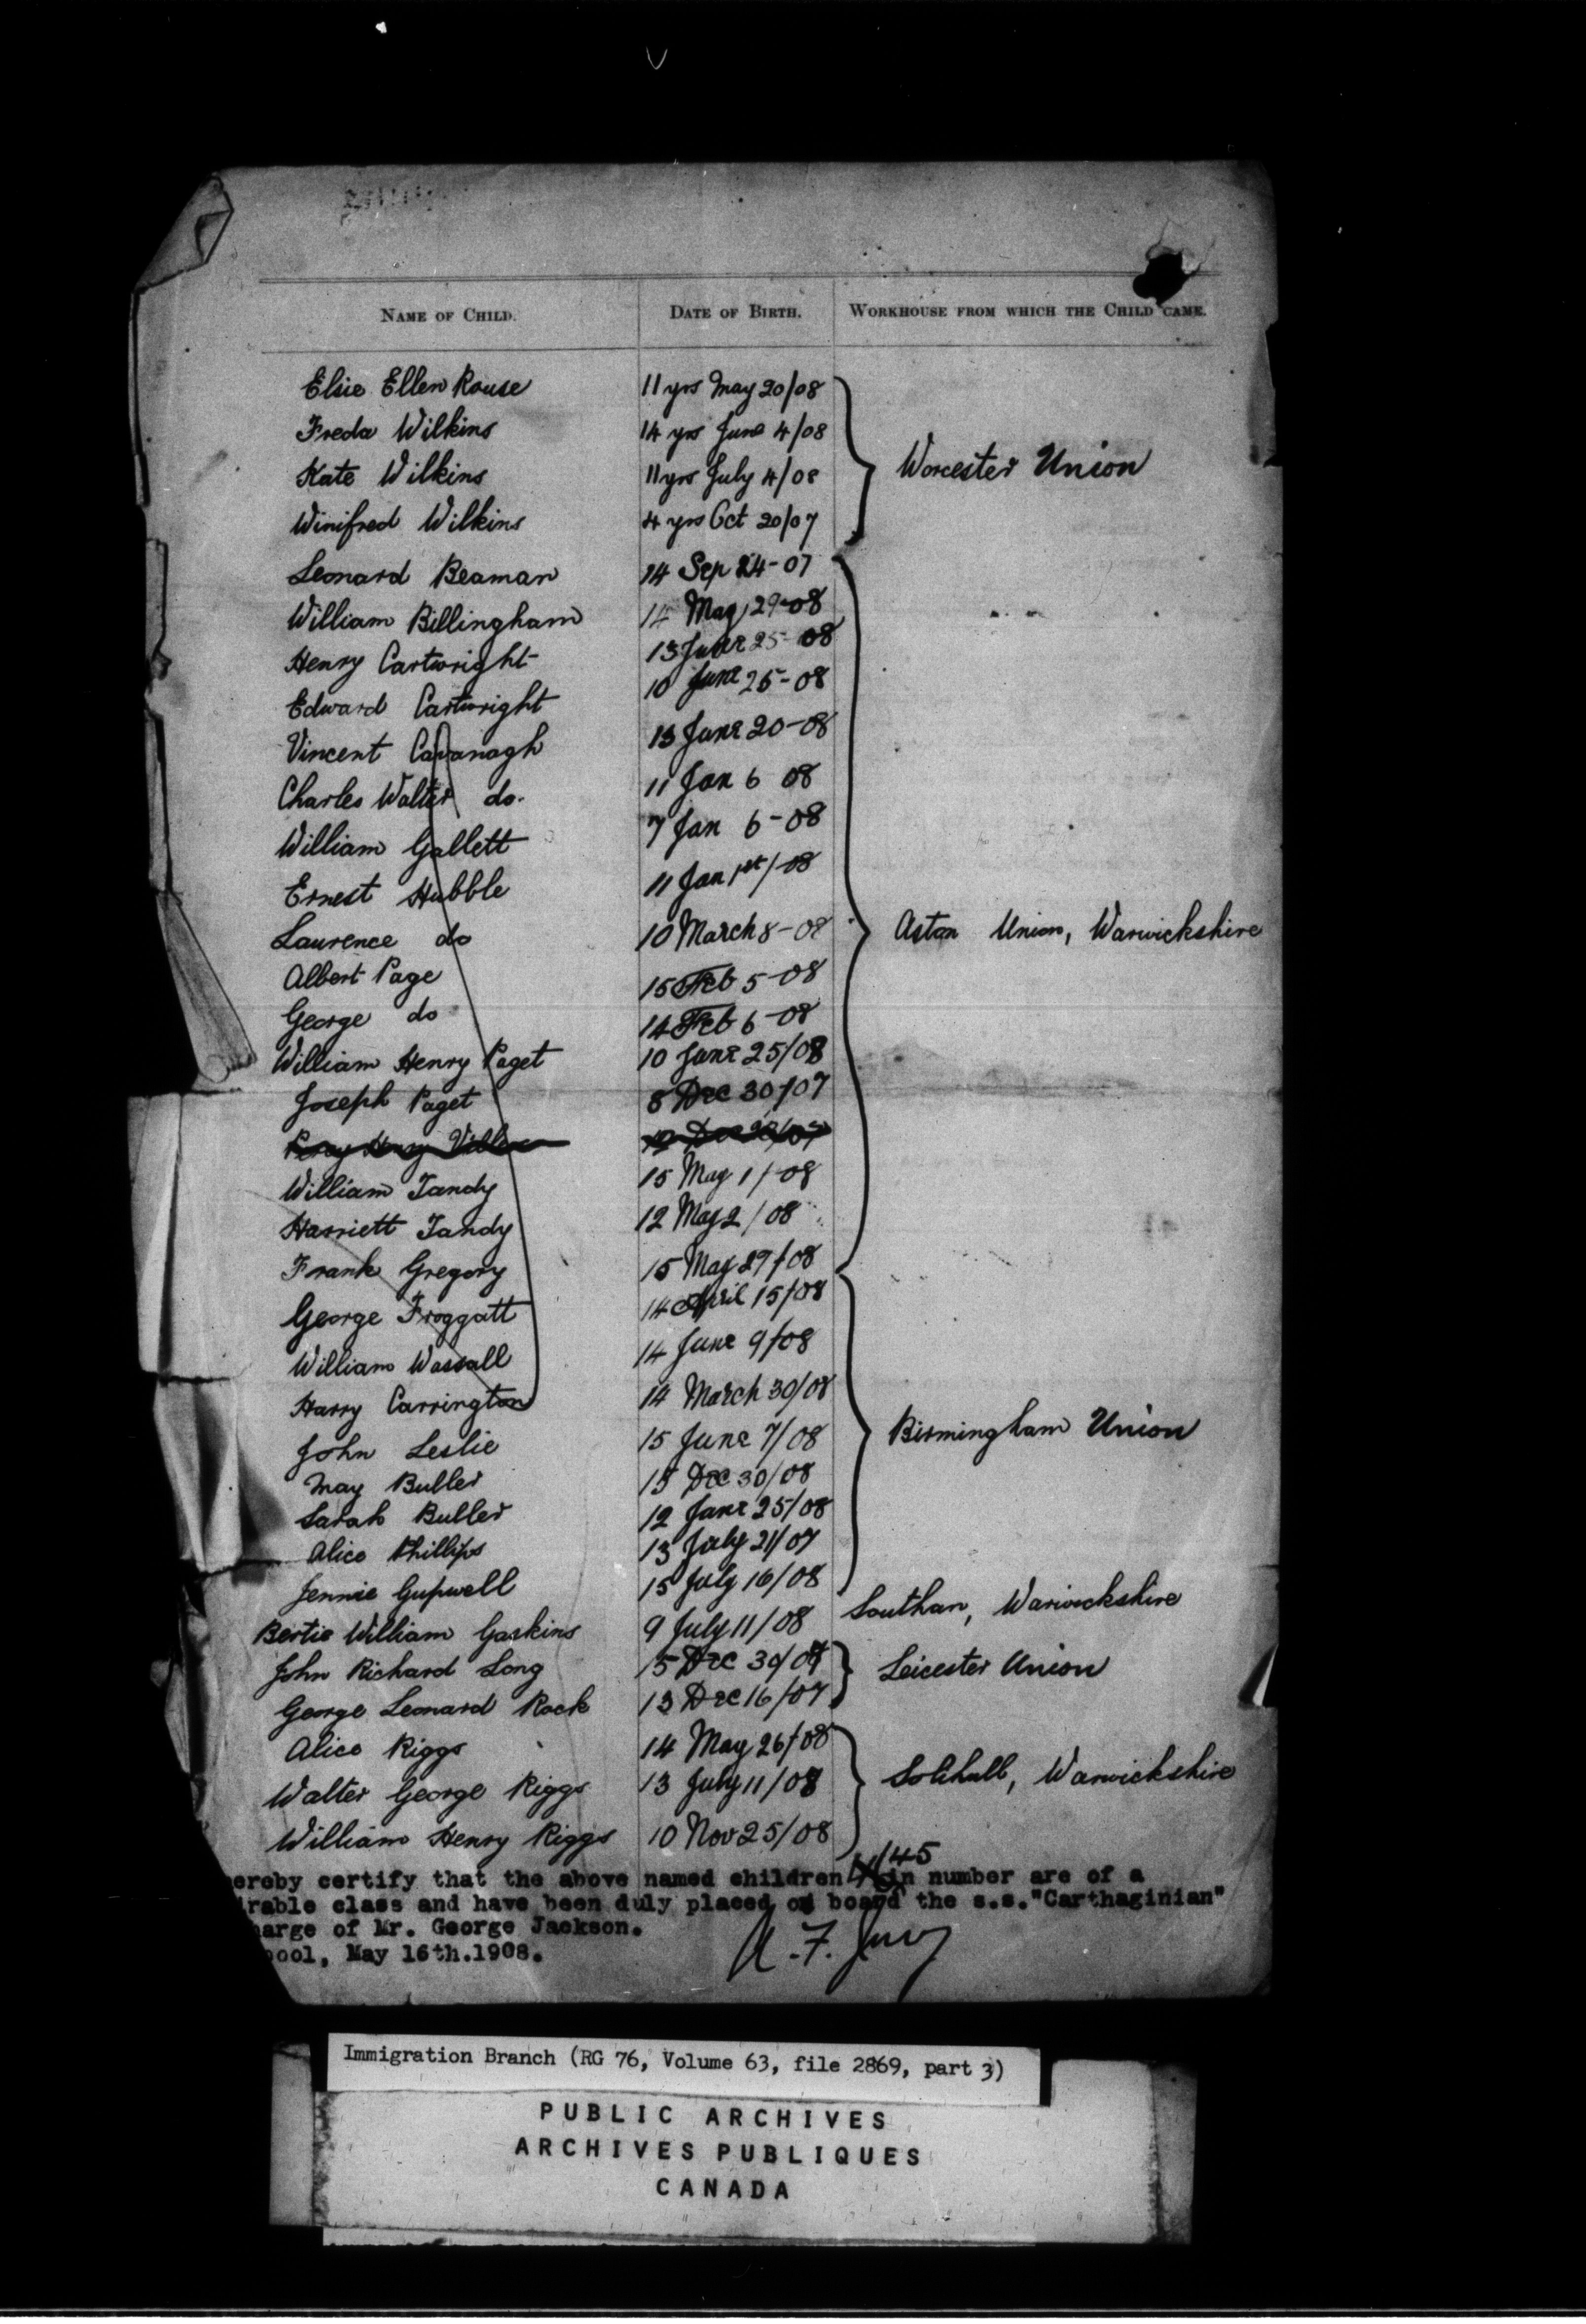 NAME OF CHILD. DATE OF BIRTH. WORKHOUSE FROM WHICH THE CHILD CAME.
Elsie Ellen Rouse 11 yrs May 20/08
Freda Wilkins 14 yrs June 4/08
Worcester Union
Kate Wilkins 11 yrs July 4/08
Winifred Wilkins 4 yrs Oct 20/07
Leonard Beaman 14 Sep 24-07
William Billingham 14 May 29-08
Henry Cartwright 13 June 25-08
Edward Cartwright 10 June 25-08
Vincent Cavanagh 13 June 20-08
Charles Walter do. 11 Jan 6 08
William Gallett 7 Jan 6-08
Ernest Hubble 11 Jan 1st/-08
Laurence do 10 March 8-08
Aston Union, Warwickshire
Albert Page 15 Feb 5-08
George do 14 Feb 6-08
William Henry Paget 10 June 25/08
Joseph Paget 8 Dec 30/07
Percy Henry
William Tandy 15 May 1/-08
Harriett Tandy 12 May 2/08
Frank Gregory 15 May 29/08
George Froggatt 14 April 15/08
William Wassall 14 June 9/08
Harry Carrington 14 March 30/08
Birmingham Union
John Leslie 15 June 7/08
May Buller 15 Dec 30/08
Sarah Buller 12 June 25/08
Alice Phillips 13 July 21/07
Jennie Gupwell 15 July 16/08
Bertie William Gaskins 9 July 11/08 Southan, Warwickshire
John Richard Long 15 Dec 30/07 Leicester Union
George Leonard Rock 13 Dec 16/07
Alice Riggs 14 May 26/08
Walter George Riggs 13 July 11/08 Solihull, Warwickshire
William Henry Riggs 10 Nov 25/08
45
ereby certify that the above named children in number are of a
irable class and have been duly placed on board the s.s."Carthaginian"
harge of Mr. George Jackson.
pool, May 16th.1908.
Immigration Branch (RG 76, Volume 63, file 2869, part 3)
PUBLIC ARCHIVES
ARCHIVES PUBLIQUES
CANADA